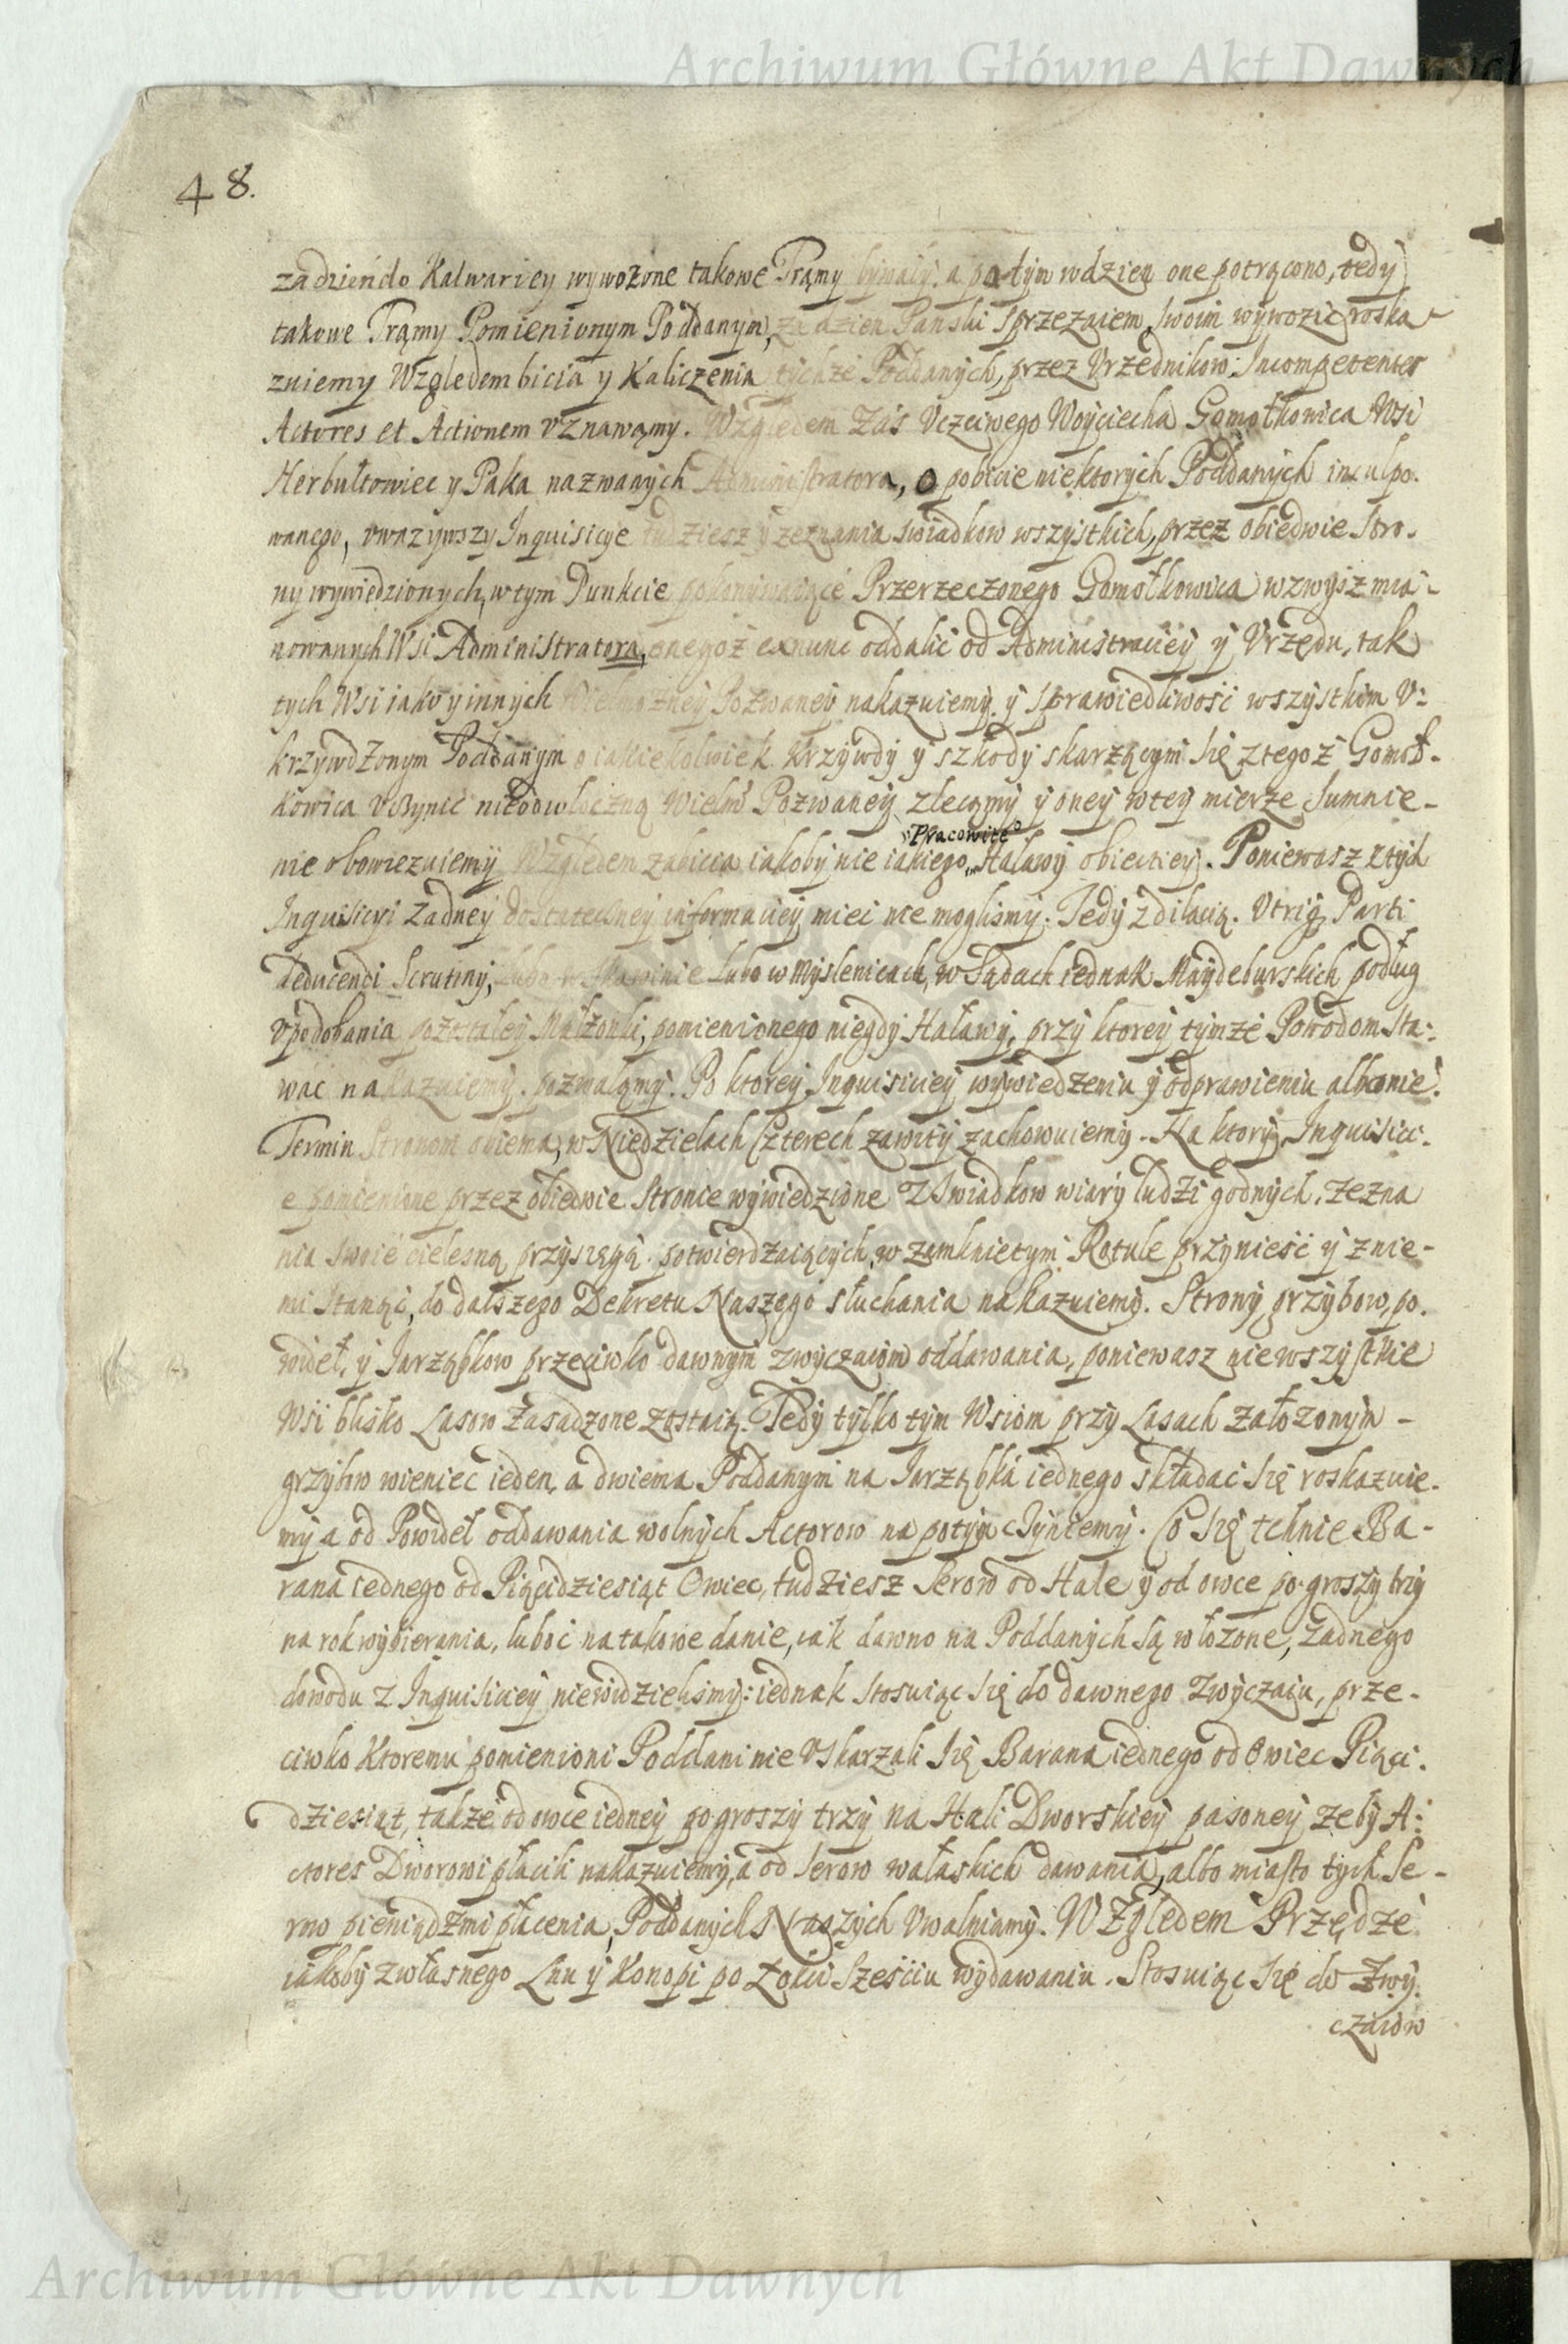 Archiwum Główne Akt Dawnych
48.
za dzień do Kalwariey wywożone takowe Tramy bywały. a potym wdzien one potrącono, tedy
takowe Tramy Pomienionym Poddanym, za dzien Panski Sprzezaiem swoim wywozić roska
zuiemy Względem bicia y Kaliczenia tychże Poddanych, przez Vrzednikow. Incompetentes
Actores et Actionem vznawamy. Względem Zaś Vczciwego Woyciecha Gomołkowica Wsi
Herbułtowiec y Paka nazwanych Administratora, o pobicie niektorych Poddanych inculpo.
wanego, vwazywszy Inquisicye tudziesz y zeznania swiadkow wszystkich, przez obiedwie Stro.
ny wywiedzionych, w tym Punkcie pokonywaiące Przerzeczonego Gomołkowica wzwysz mia-
nowanych Wsi Administratora, onegoż exnunc oddalić od Administraciey y Vrzędu, tak
tych Wsi iako y innych Wielmożney Pozwaney nakazuiemy. y sprawiedliwość wszystkim V:
krzywdzonym Poddanym o iakiekolwiek Krzywdy y szkody skarzącym się ztegoż Gomoł-
kowica vczynić nieodwłoczną Wielm Pozwaney zlecamy y oney wtey mierze Sumnie-
nie obowiezuiemy Względem zabicia iakoby nie iakiego, Pracowite° Haławy obiectiey. Poniewasz z tych
Inquisicyi żadney dostateczney informaciey mieć nie moglismy. Tedy z dilacią. Vtriq Parti
deducendi Scrutiny, lubo w Skawinie lubo w Myslenicach, w Sądach iednak Maydeburskich podług
vpodobania pozostałey Małżonki, pomienionego niegdy Haławy, przy ktorey tymże Powodom sta:
wać nakazuiemy. pozwalamy. Po ktorey Inquisiciey wywiedzeniu y odprawieniu albo nie.
Termin Stronom obiema, w Niedzielach Czterech zawity zachowuiemy. Na ktory Inquisici-
e pomienione przez obiedwie Stronie wywiedzione z Swiadkow wiary ludzi godnych, zezna
nia swoie cielesną przysięgą potwierdzaiących, w zamknietym Rotule przynieść y znie-
mi Stanąć, do dalszego Dekretu Naszego słuchania nakazuiemy. Strony grzybow, po.
wideł, y Jarząbkow przeciwko dawnym zwyczaiom oddawania, poniewasz nie wszystkie
Wsi blisko Lasow Zasadzone zostaią. Tedy tylko tym Wsiom przy Lasach założonym -
grzybow wieniec ieden, a dwiema Poddanym na Jarząbká iednego składać się roskazuie.
my a od Powideł oddawania wolnych Actorow na potym czyniemy. Co się tchnie Ba-
rana iednego od Piąćidziesiąt Owiec, tudziesz Serow od Hale y od owce po groszy trzy
na rok wybierania, luboć na takowe danie, iak dawno na Poddanych są włożone, żadnego
dowodu z Inquisiciey niewidzielismy: iednak stosuiąc się do dawnego zwyczaiu, prze-
ciwko Ktoremu pomienioni Poddani nie Vskarzali się Barana iednego od Owiec Piąci.
dziesiąt, także od owce iedney po groszy trzy na Hali Dworskiey pasoney żeby A:
ctores Dworowi płacili nakazuiemy, a od Serow wałaskich dawania, albo miasto tych Se-
row pieniądzmi płacenia, Poddanych Naszych Vwalniamy. Względem Przędze
iakoby zwłasnego Lnu y Konopi po Łokci Sześciu wydawaniu. Stosuiąc się do Zwy.
czaiow
Archiwum Główne Akt Dawnych